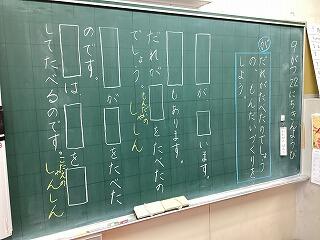 9がつ22にちきんようび
だれがたべたのでしょう
の、もんだいづくりを
しよう。
が います。
もあります。
だれが をたべたの
でしょう。もんだいの しゃしん
が をたべた
のです。
は、 を
してたべるのです。こたえの しゃしん